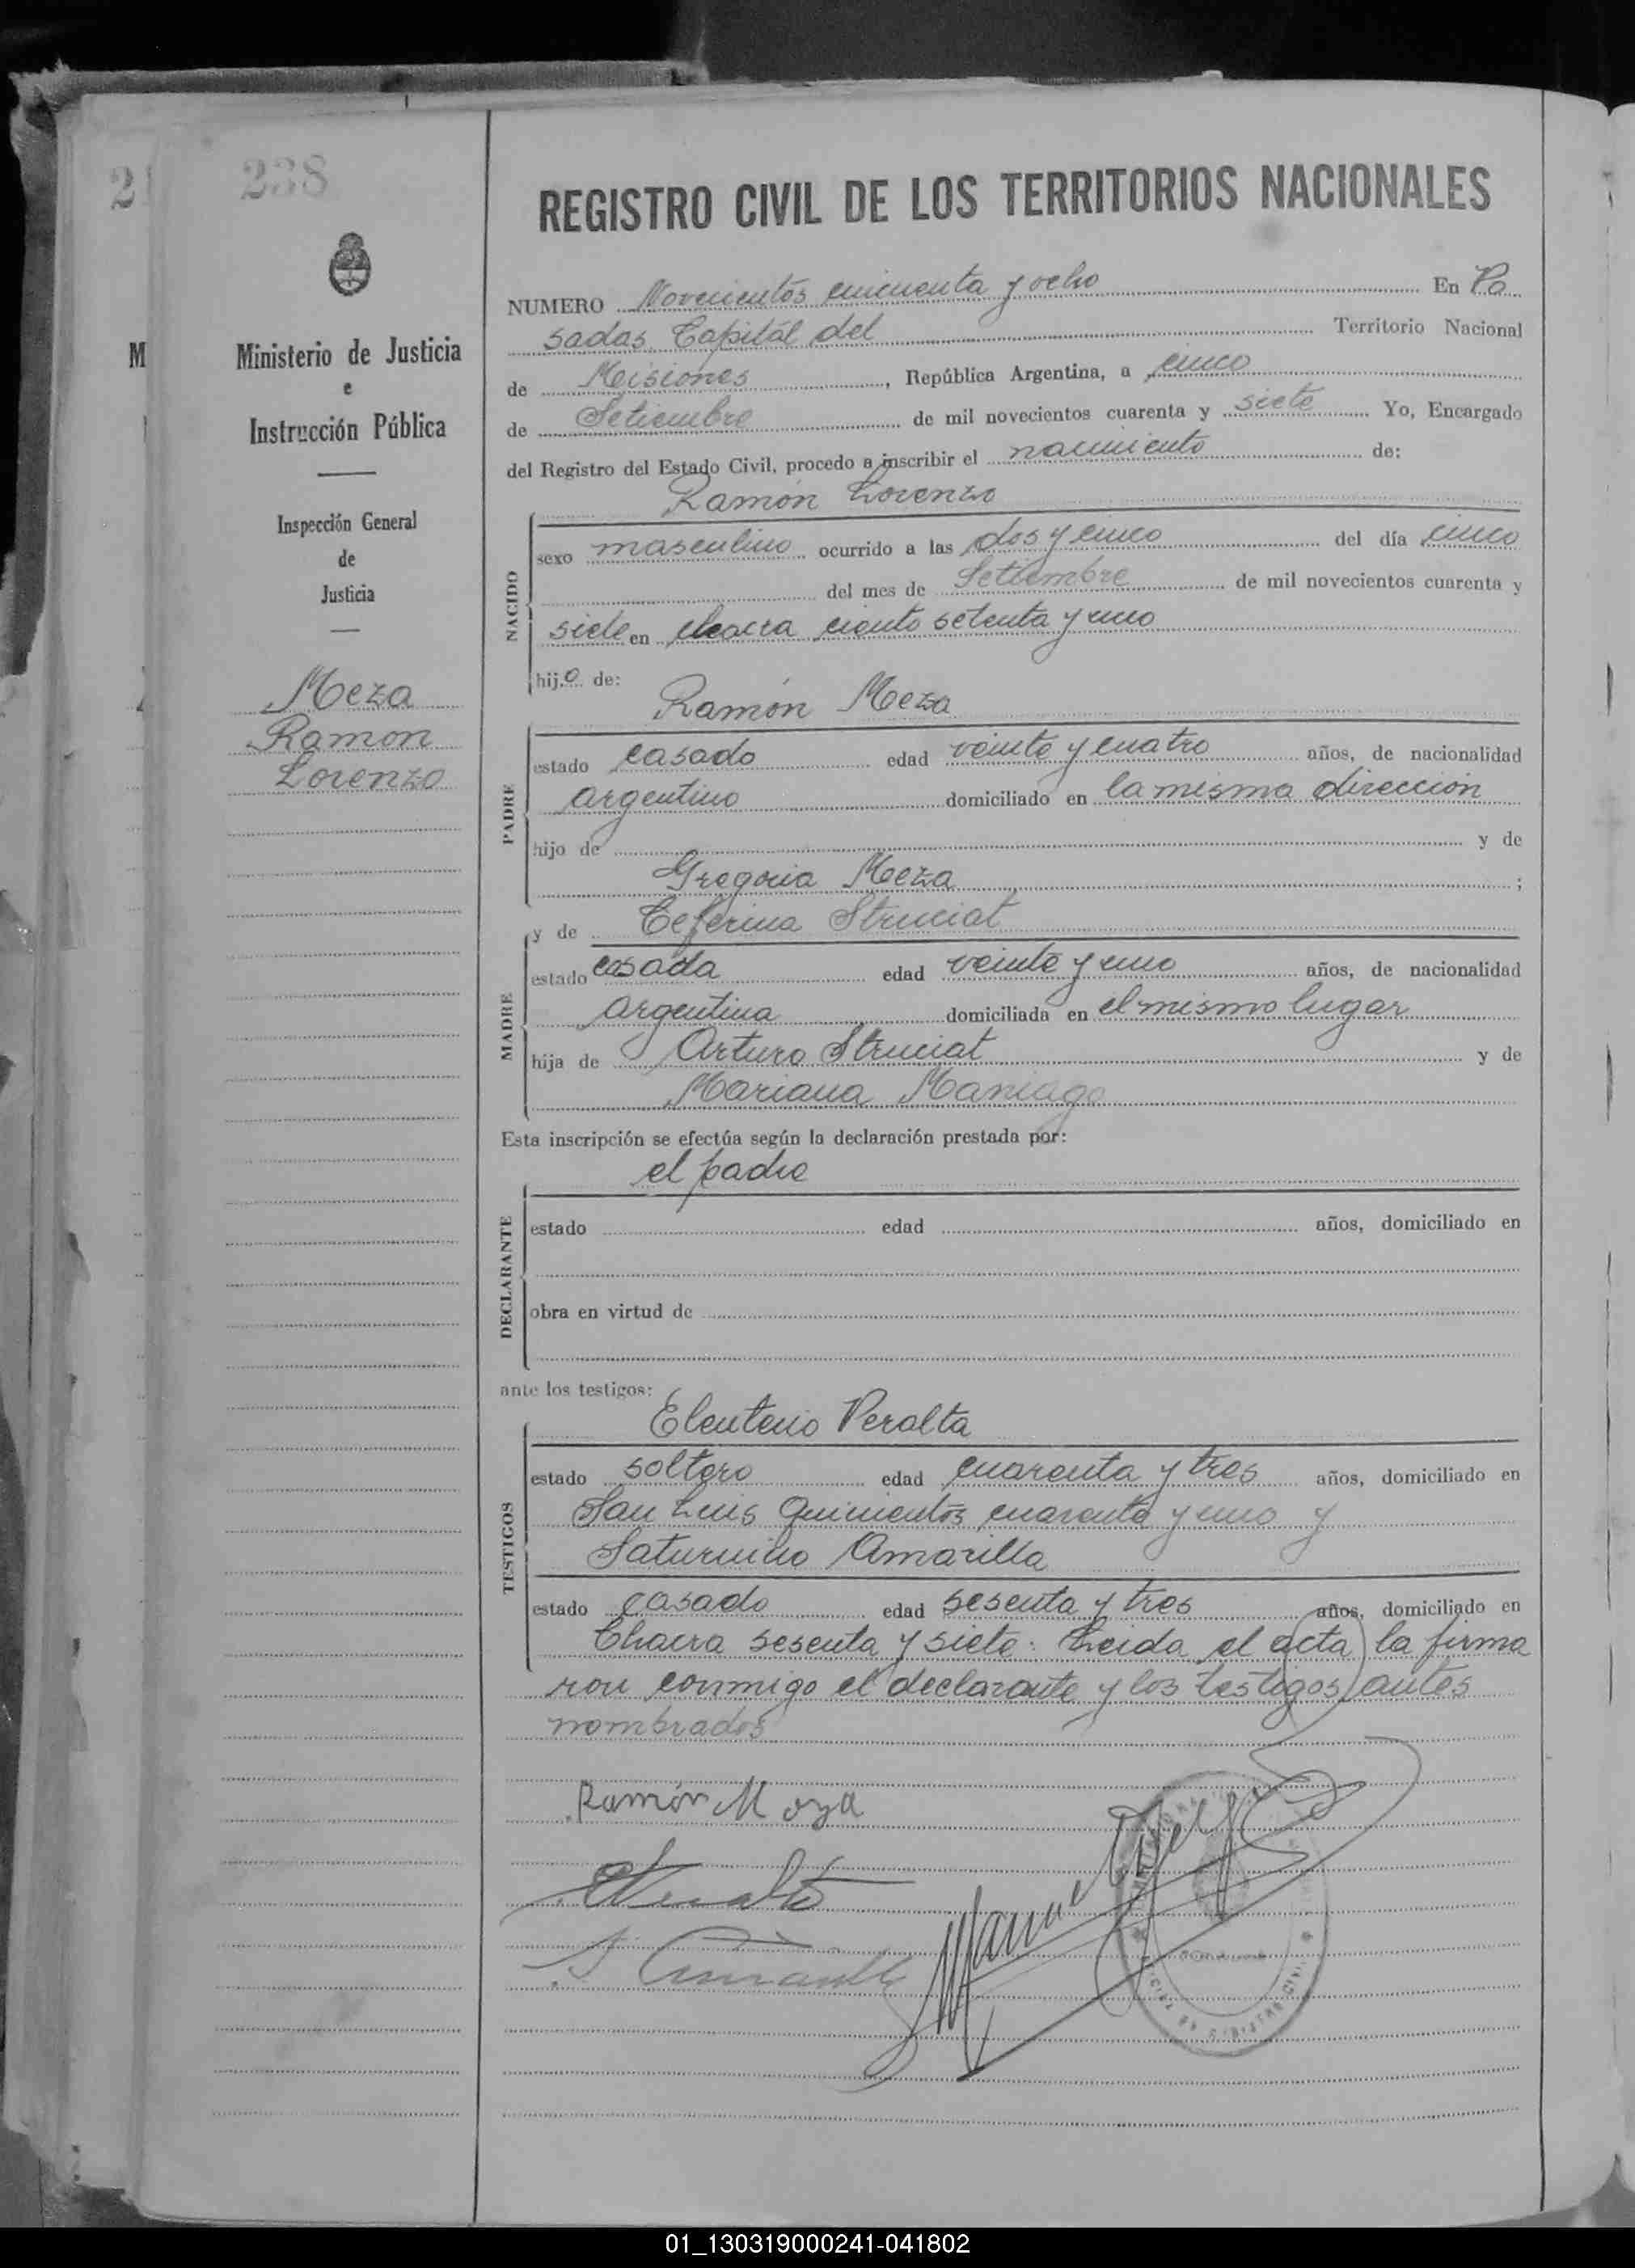 238
21
M
Ministerio de Justicia
e
Instrucción Pública
Inspección General
de
Justicia
Meza
Ramon
Lorenzo
REGISTRO CIVIL DE LOS TERRITORIOS NACIONALES
NUMERO Novecientos cincuenta y ocho En Po
sadas Capitál del Territorio Nacional
de Misiones, República Argentina, a cinco
de Setiembre de mil novecientos cuarenta y siete Yo, Encargado
del Registro del Estado Civil, procedo a inscribir el nacimiento de:
Ramón Lorenzo
NACIDO
sexo masculino ocurrido a las dos y cinco del día cinco
del mes de Setiembre de mil novecientos cuarenta y
siete en chacra ciento setenta y uno
hijo de:
Ramón Meza
PADRE
estado casado edad veinte y cuatro años, de nacionalidad
argentino domiciliado en la misma dirección
hijo de y de
Gregoria Meza ;
y de Ceferina Struciat
MADRE
estado casada edad veinte y uno años, de nacionalidad
argentina domiciliada en el mismo lugar
hija de Arturo Struciat y de
Mariana Maniago
Esta inscripción se efectúa según la declaración prestada por:
el padre
DECLARANTE
estado edad años, domiciliado en
obra en virtud de
ante los testigos:
Eleuterio Peralta
TESTIGOS
estado soltero edad cuarenta y tres años, domiciliado en
San Luis Quinientos cuarenta y uno y
Saturnino Amarilla
estado casado edad sesenta y tres años, domiciliado en
Chacra sesenta y siete. Leida el acta la firma
ron conmigo el declarante y los testigos antes
nombrados
Ramón Meza
01_130319000241-041802